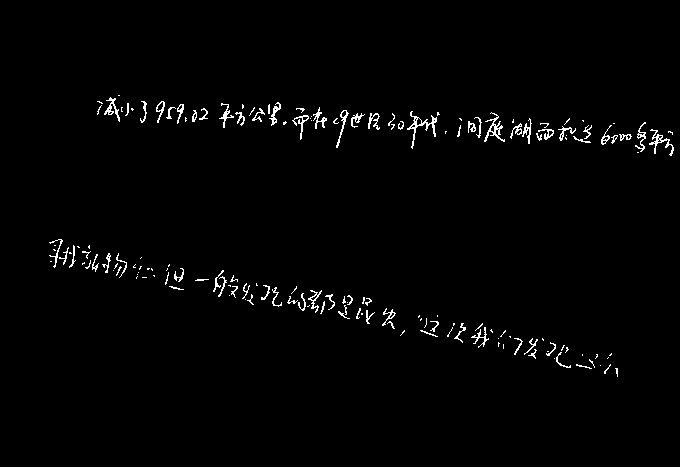 减小了959.02平方公里。而在19世纪30年代,洞庭湖面积达6000多平方
我动物 但一般发现的都是昆虫,这次我们发现这么